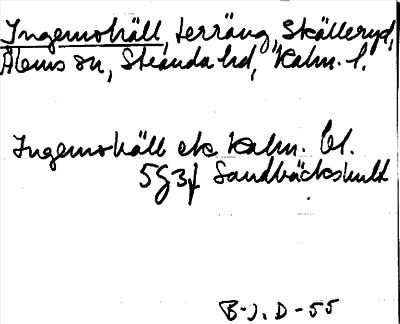 Ingemohäll, terräng, Skälleryd,
Ålems sn, Stranda hd, Kalm. l.
Ingemohäll ek Kalm. bl.
5G3f Sandbäckshult
B-J. D-55